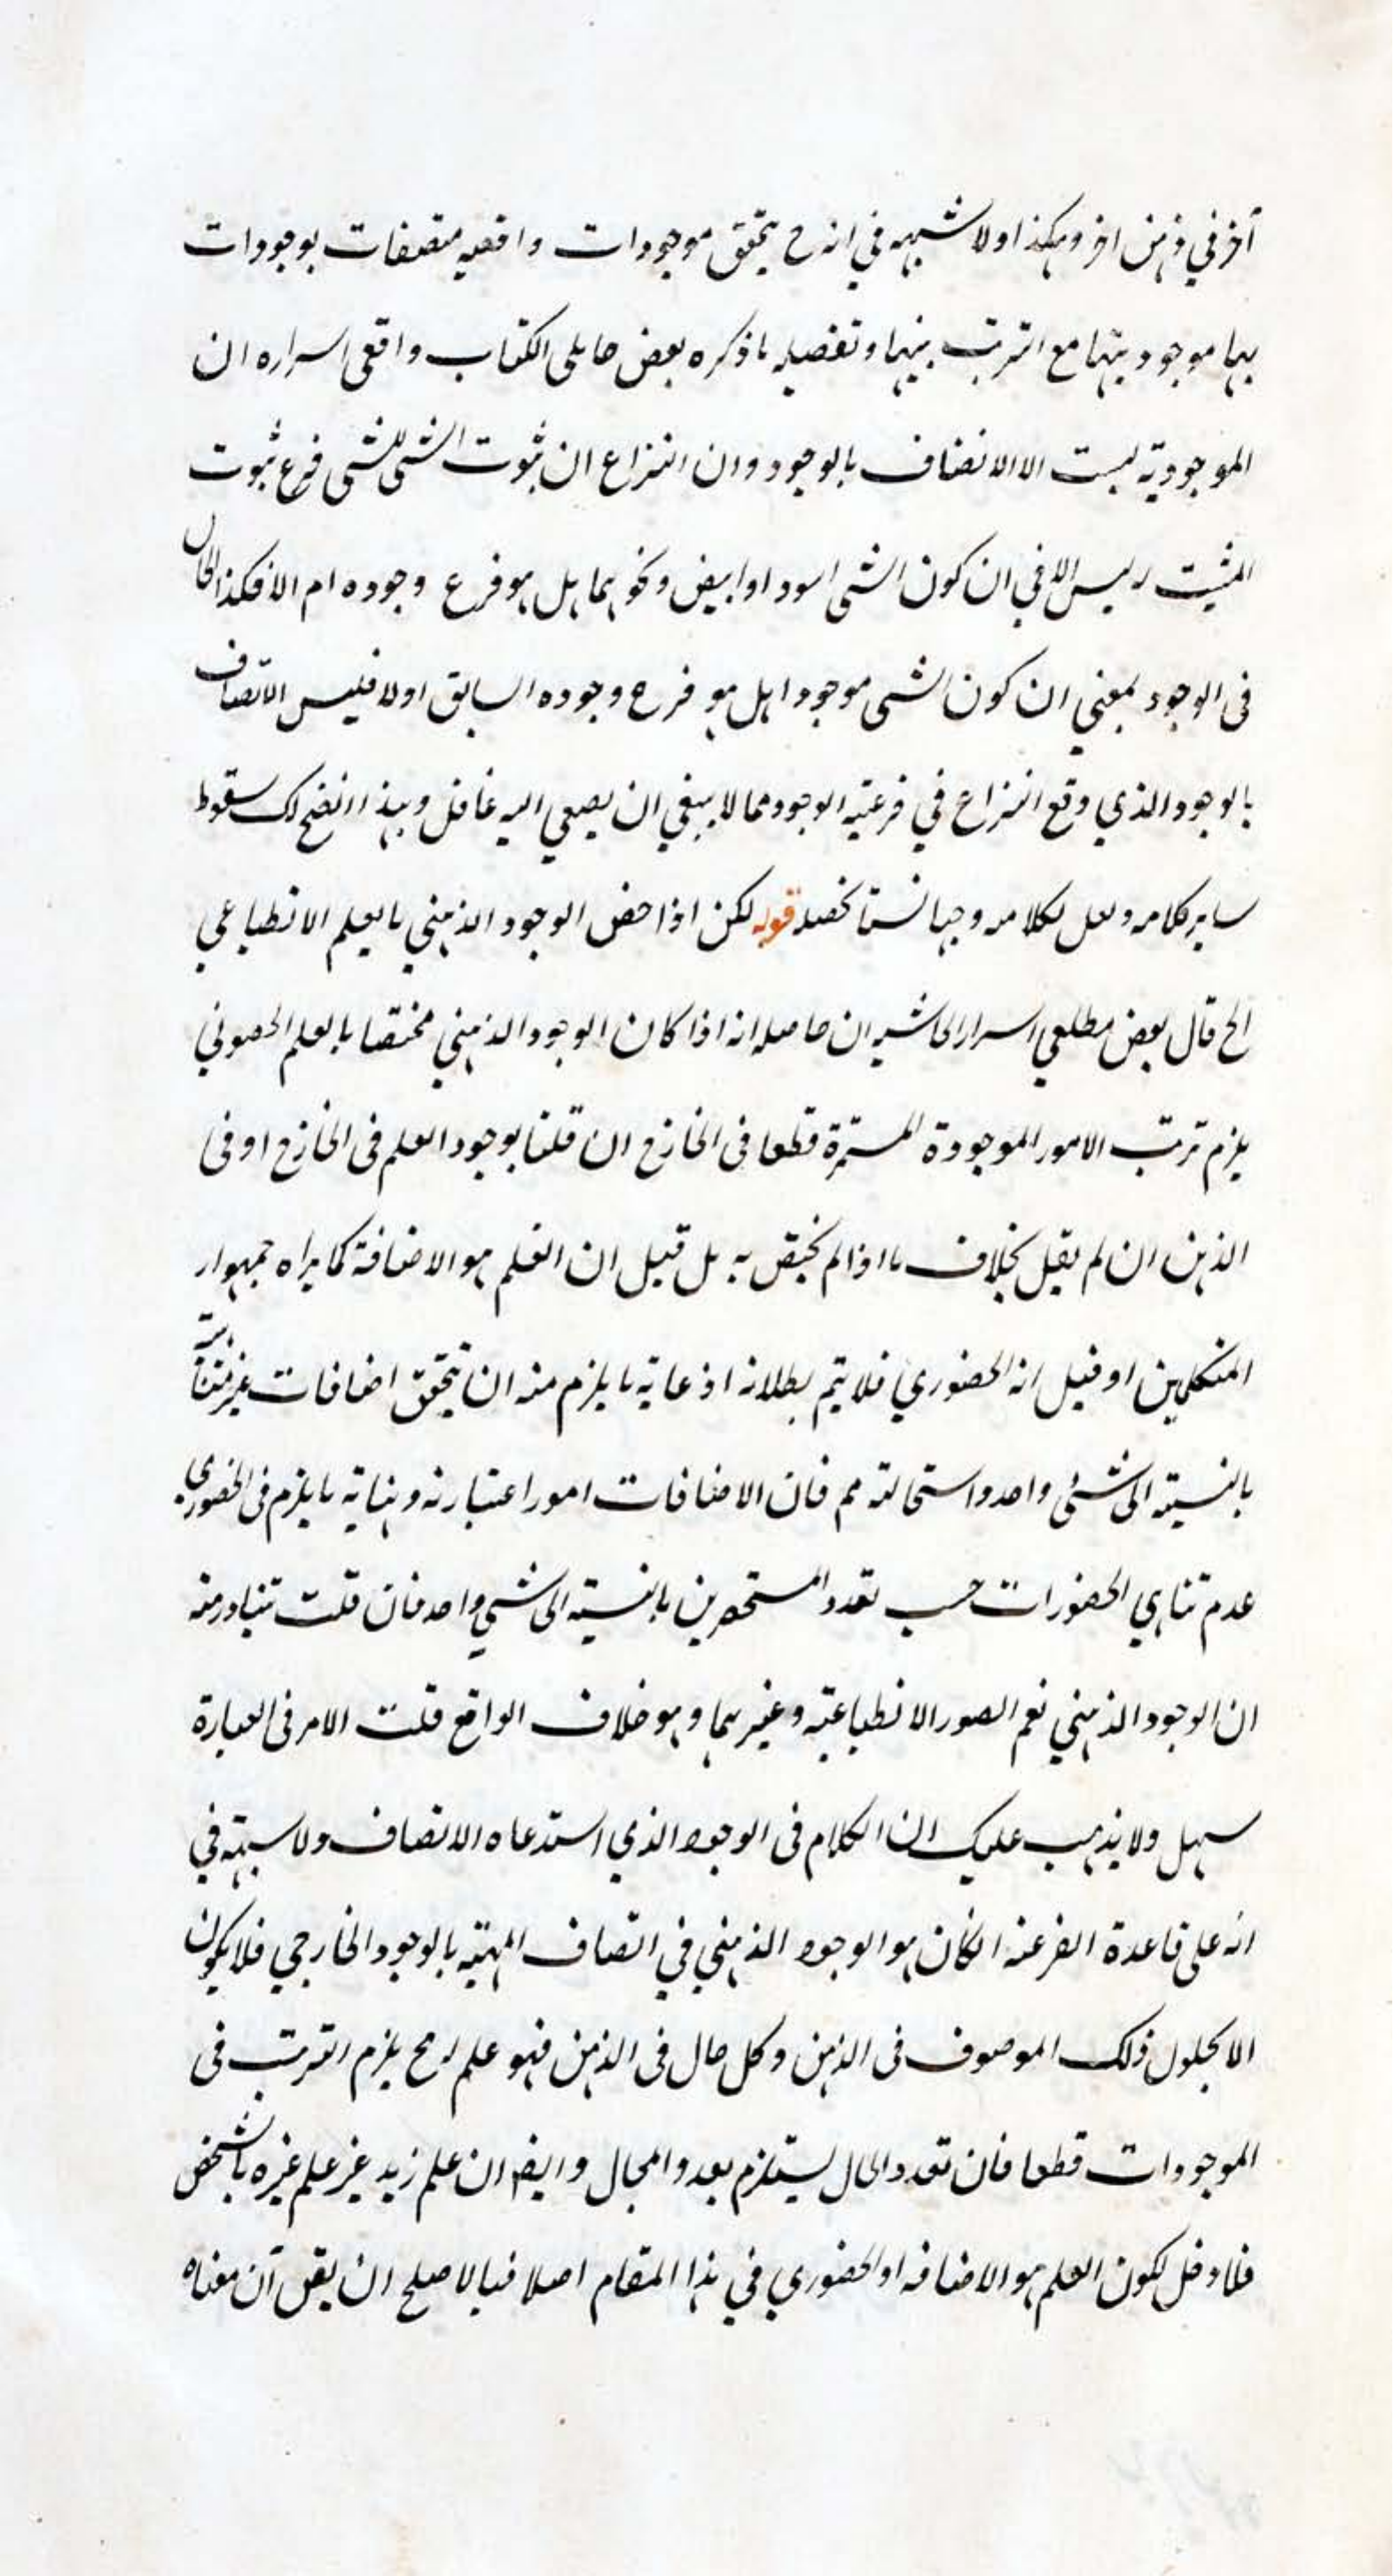 آخر في ذهن اخر وهكذا ولا شبهه في انه ح يتحقق موجودات واقعيه متصفات بوجودات
بها موجوديتها مع الترتب بينها وتفصيله ما ذكره بعض حاملى الكتاب واقعى اسراره ان
الموجودية ليست الا الاتصاف بالوجود وان النزاع ان ثبوت الشى للشى فرع ثبوت
المثبت له ليس الا في ان كون الشى اسود او ابيض ونحوهما هل هو فرع وجوده ام لا فكذا الحال
فى الوجود بمعني ان كون الشى موجودا هل هو فرع وجوده السابق اولا فليس الاتصاف
بالوجود الذي وقع النزاع في فرعيته الوجود مما لا ينبغي ان يصغي اليه غافل وبهذا اتضح لك سقوط
ساير كلامه ولعل لكلامه وجها لسنا نحصله قوله لكن اذا خص الوجود الذهني بالعلم الانطباعي
الخ قال بعض مطلعي اسرار الحاشيه ان حاصله انه اذا كان الوجود الذهني مختصا بالعلم الحصولي
يلزم ترتب الامور الموجودة المستمرة قطعا فى الخارج ان قلنا بوجود العلم فى الخارج او فى
الذهن ان لم نقل بخلاف ما اذا لم يختص به بل قيل ان العلم هو الاضافة كما يراه جمهوار
المتكلمين او قيل انه الحضوري فلا يتم بطلانه اذ غاية ما يلزم منه ان يتحقق اضافات غير متناهية
بالنسبته الى شئى واحد واستحالته مم فان الاضافات امور اعتباريه ونهاية ما يلزم فى الحضوري
عدم تناهي الحضورات حسب تعدد المستحضرين بالنسبته الى شئي واحد فان قلت تتبادر منه
ان الوجود الذهني نعم الصور الانطباعيته وغيرهما وهو خلاف الواقع قلت الامر فى العبارة
سهل ولا يذهب عليك ان الكلام فى الوجود الذي استدعاه الاتصاف ولا شبهته في
انه على قاعدة الفرعيه انكان هو الوجود الذهني في اتصاف المهيته بالوجود الخارجي فلا يكون
الا بحلول ذلك الموصوف فى الذهن وكل حال فى الذهن فهو علم له وح يلزم الترتب فى
الموجودات قطعا فان تعدد الحال يستلزم بعدد المحال وايضا ان علم زيد غير علم غيره بالشخص
فلا دخل لكون العلم هو الاضافه او الحضوري في هذا المقام اصلا فبالاصلح ان يقل آن معناه